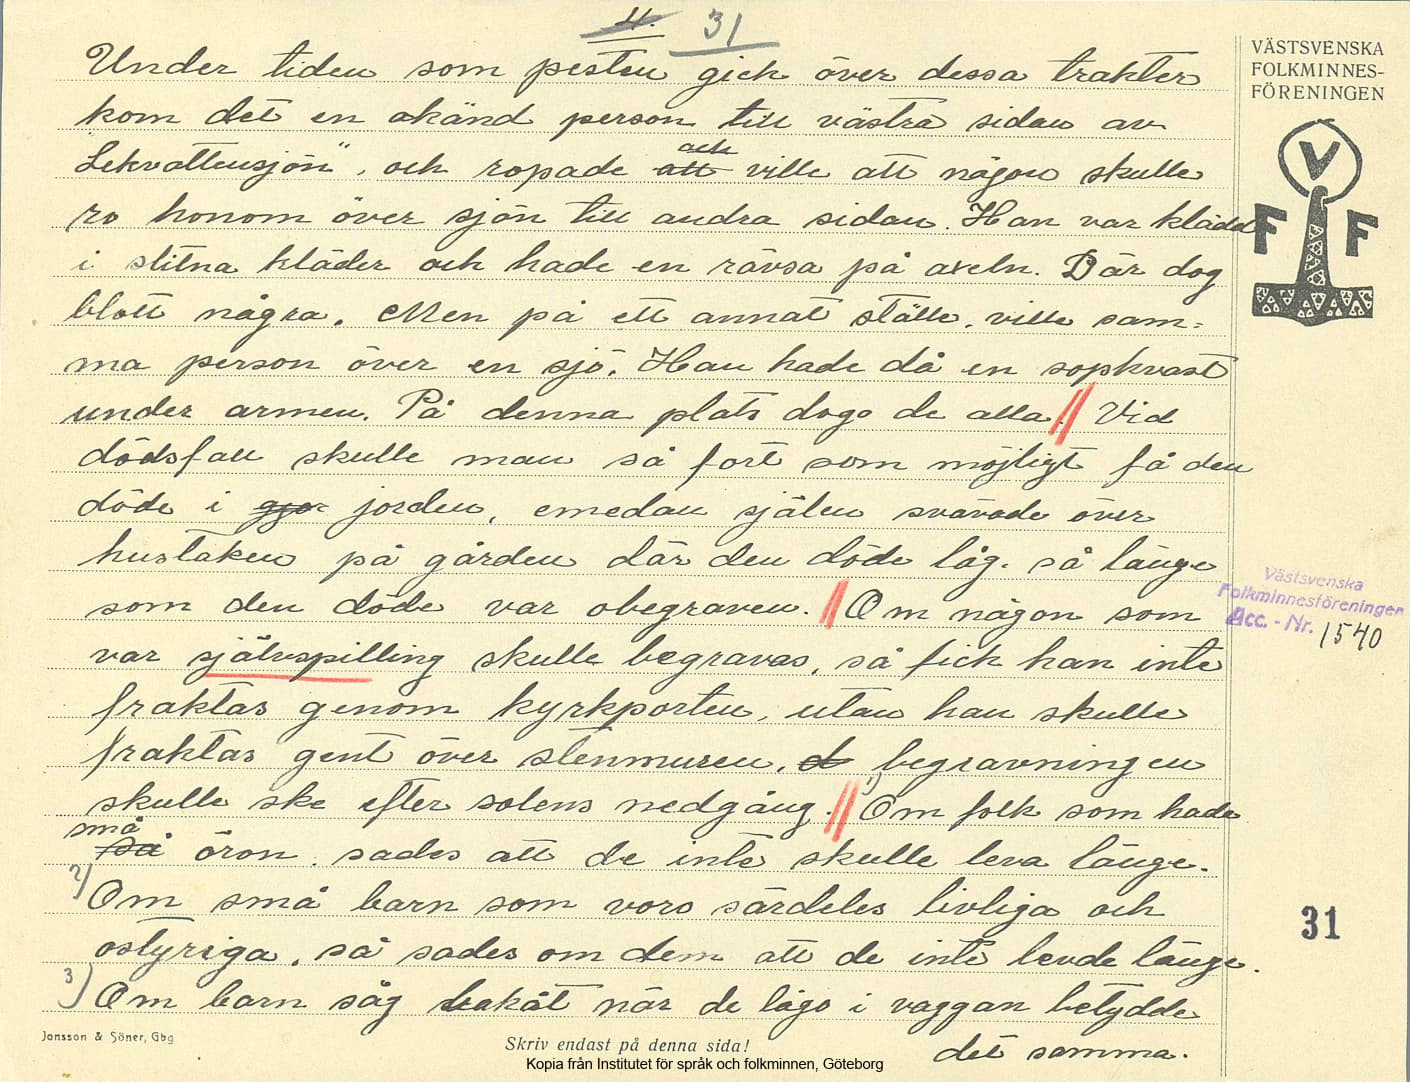 11. 31
Under tiden som pesten gick över dessa trakter
kom det en okänd person till västra sidan av
Lekvattensjön", och ropade att och ville att någon skulle
ro honom över sjön till andra sidan. Han var klädd
i slitna kläder och hade en rävsa på axeln. Där dog
blott några. Men på ett annat ställe, ville sam-
ma person över en sjö. Han hade då en sopkvast
under armen. På denna plats dogo de alla. Vid
dödsfall skulle man så fort som möjligt få den
döde i gjor jorden, emedan själen svävade över
hustaken på gården där den döde låg. så länge
som den döde var obegraven. Om någon som
var självspilling skulle begravas, så fick han inte
fraktas genom kyrkporten, utan han skulle
fraktas gent över stenmuren, d begravningen
skulle ske efter solens nedgång. 1) Om folk som hade
små så öron. sades att de inte skulle leva länge.
2) Om små barn som voro särdeles livliga och
ostyriga, så sades om dem att de inte levde länge.
3) Om barn såg bakåt när de lågo i vaggan betydde
det samma.
VÄSTSVENSKA
FOLKMINNES-
FÖRENINGEN
V
F F
Västsvenska
Folkminnesföreningen
Acc.-Nr. 1540
31
Jonsson & Söner, Gbg
Skriv endast på denna sida!
Kopia från Institutet för språk och folkminnen, Göteborg